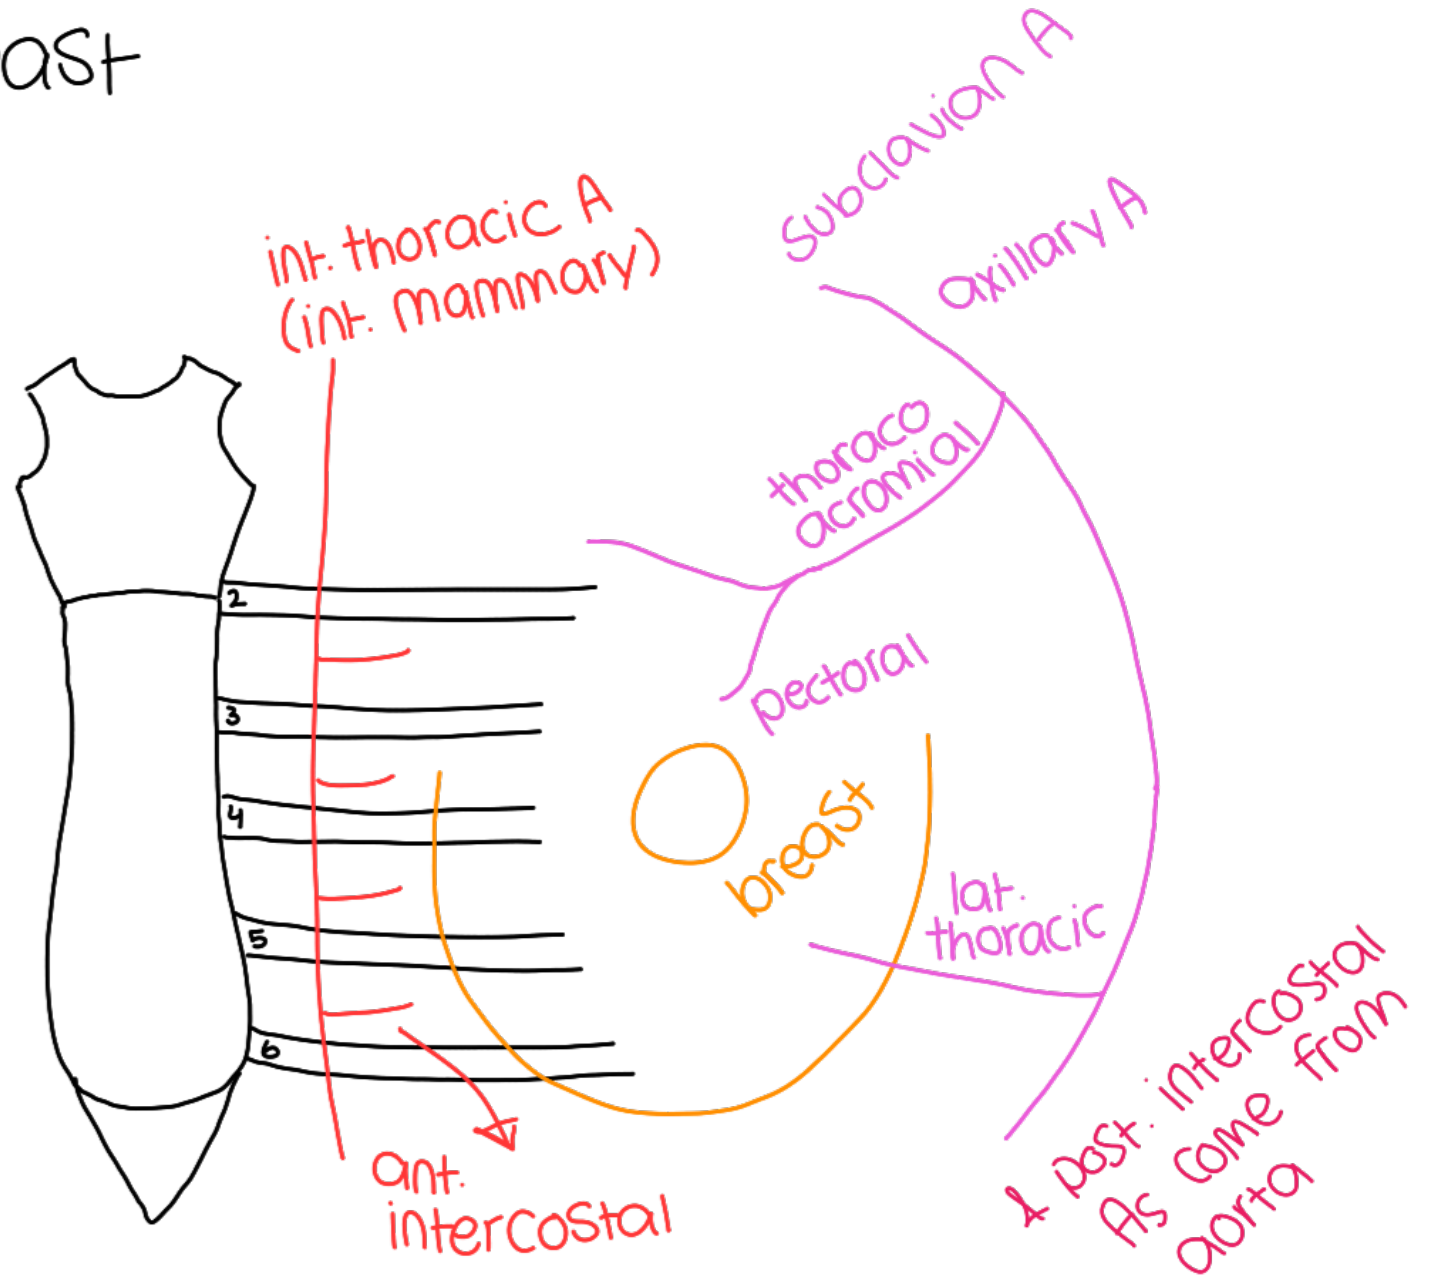 ast
int. thoracic A
(int. mammary)
Subclavian A
axillary A
thoraco
acromial
pectoral
2
3
4
5
6
breast
lat.
thoracic
ant.
intercostal
& post. intercostal
As come from
aorta